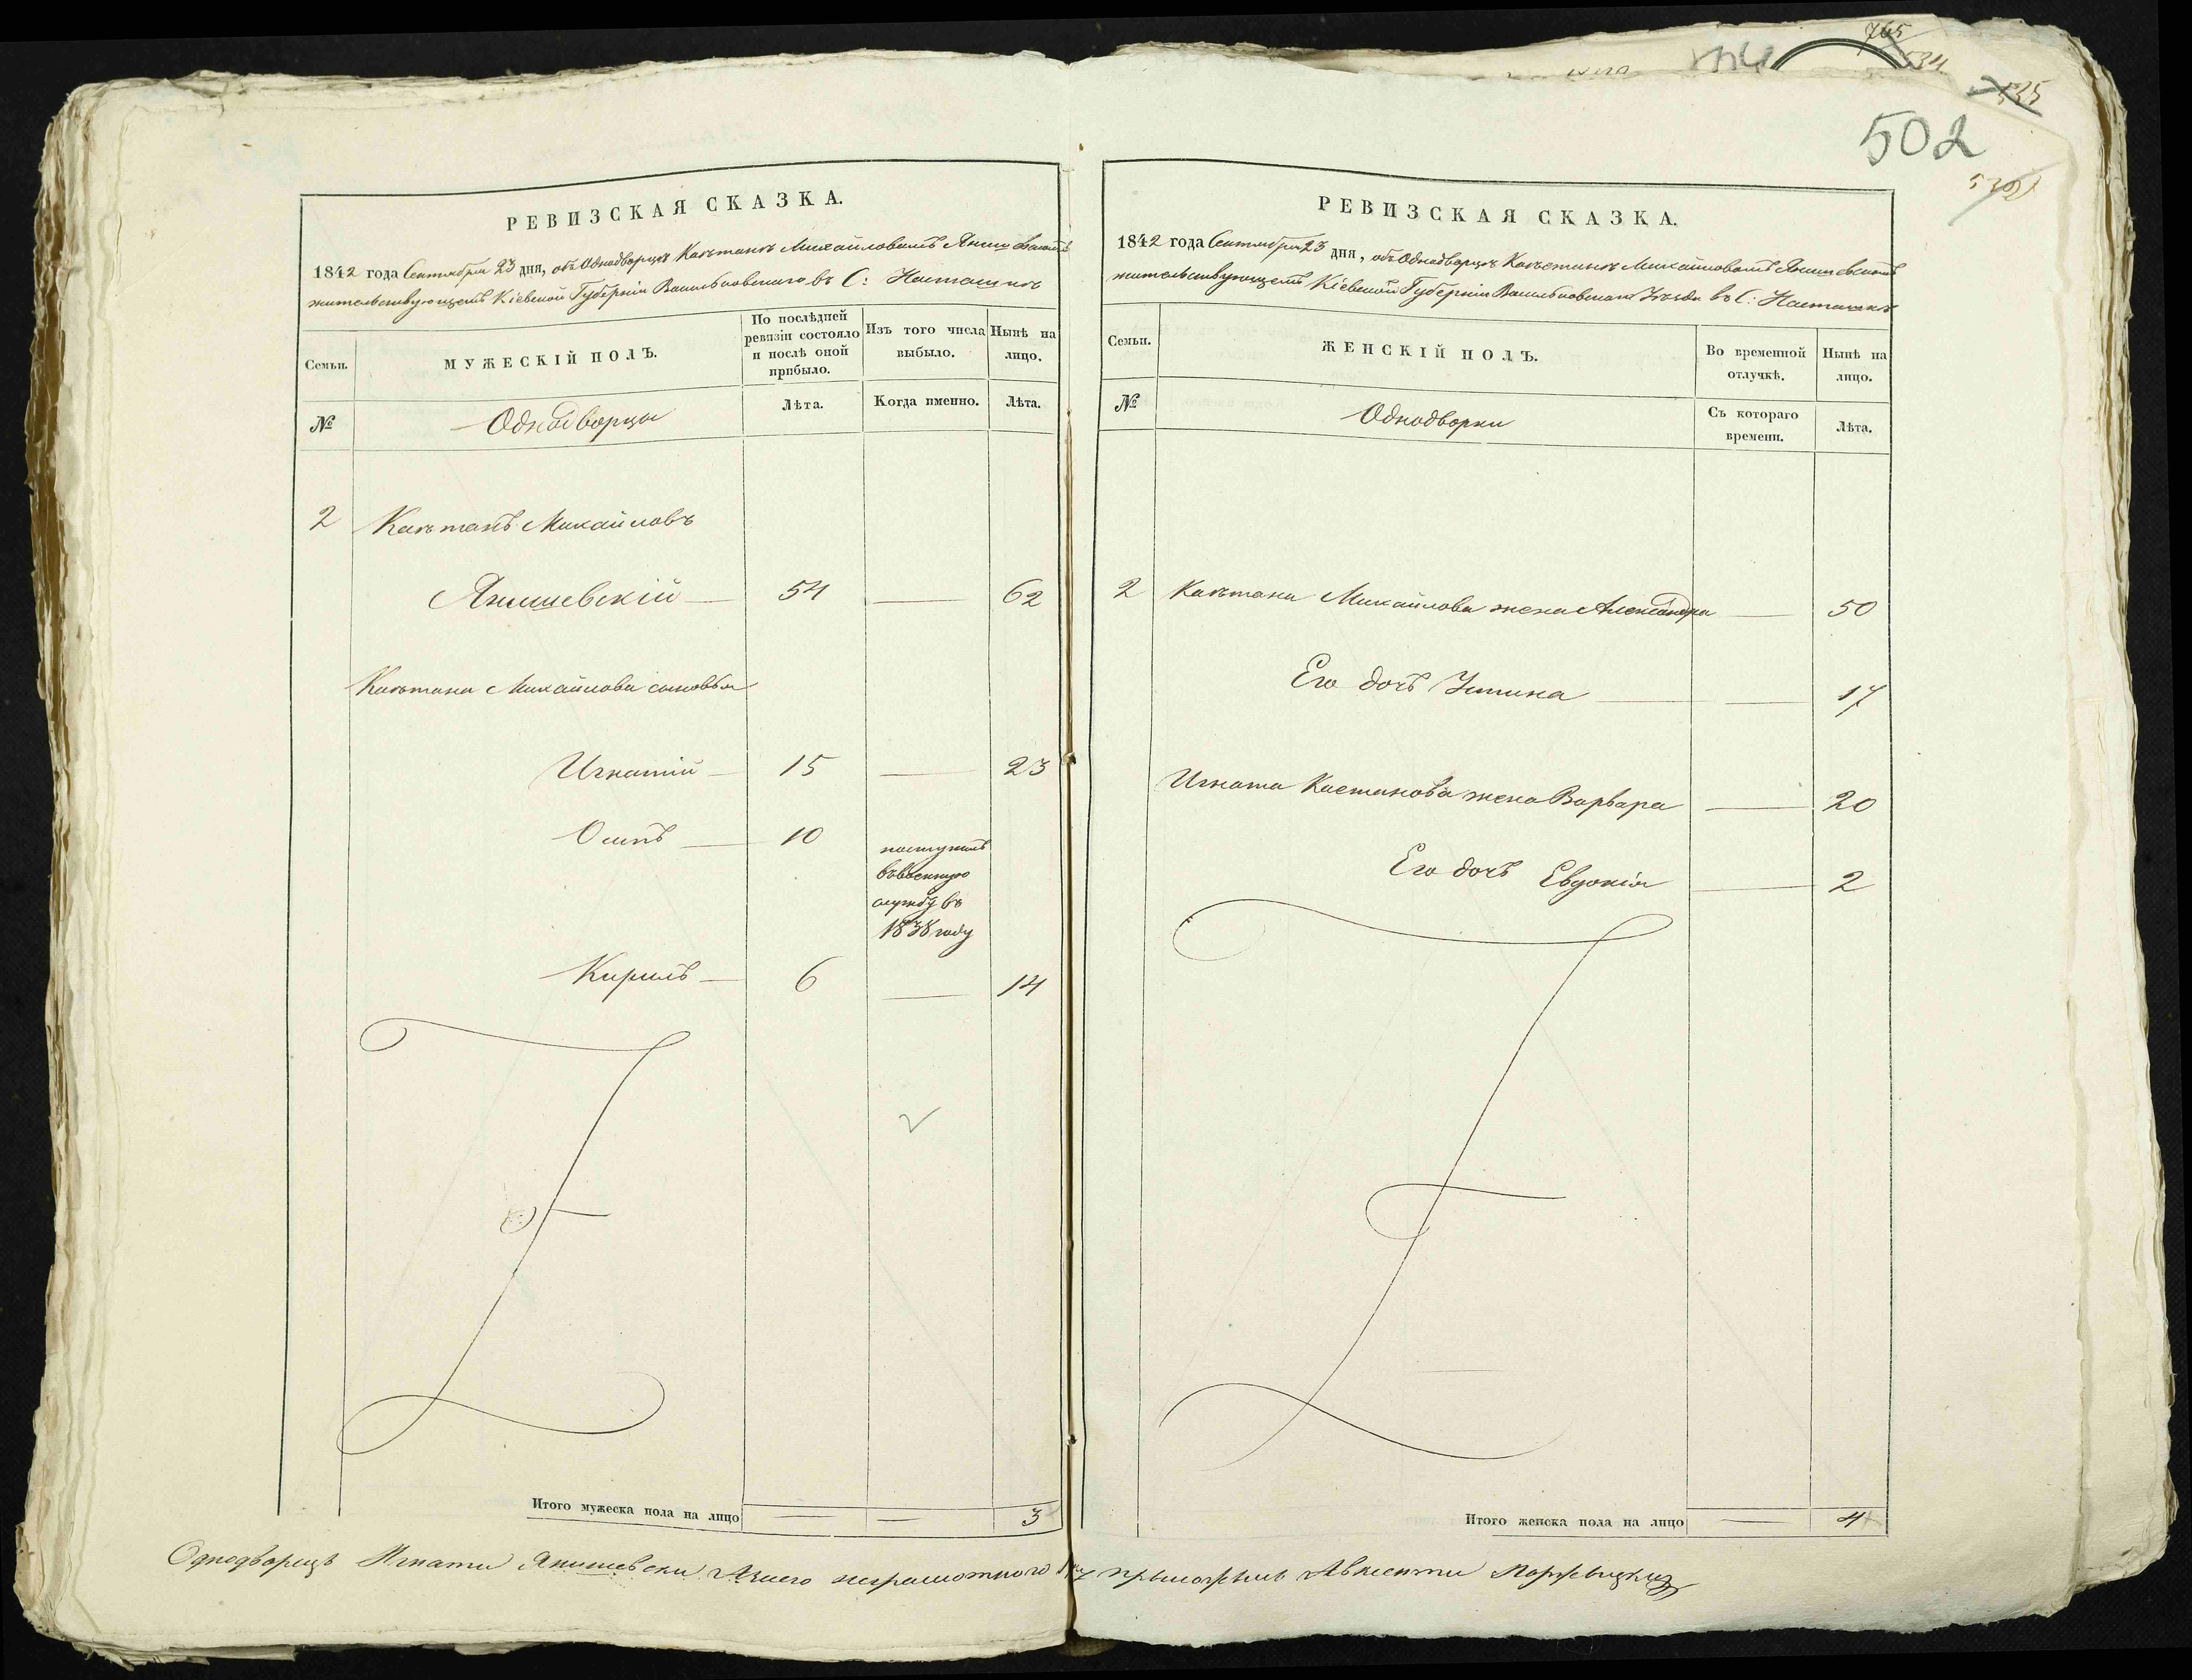 765
534
535
502
РЕВИЗСКАЯ СКАЗКА.
1842 года Сентября 23 дня, объ Однодворцѣ Каэтанѣ Михайловомъ Янишевскомъ
жительствующемъ Кіевской Губерніи Васильковскаго въ С: Насташкѣ
Семьи.
МУЖЕСКІЙ ПОЛЪ.
По послѣдней ревизіи состояло и послѣ оной прибыло.
Изъ того числа выбыло.
Нынѣ на лицо.
№
Однодворцы
Лѣта.
Когда именно.
Лѣта.
2 Каэтанъ Михайловъ
Янишевскій 54 — 62
Каэтана Михайлова сыновья
Игнатій 15 — 23
Осипъ 10 поступилъ
въ военную
службу въ
1838 году
Кирилъ 6 — 14
Итого мужеска пола на лицо — — 3
РЕВИЗСКАЯ СКАЗКА.
1842 года Сентября 23 дня, объ Однодворцѣ Каэтанѣ Михайловомъ Янишевскомъ
жительствующемъ Кіевской Губерніи Васильковскаго Уѣзда въ С: Насташкѣ
Семьи.
ЖЕНСКІЙ ПОЛЪ.
Во временной отлучкѣ.
Нынѣ на лицо.
№
Однодворки
Съ котораго времени.
Лѣта.
2 Каэтана Михайлова жена Александра — 50
Его дочь Устина — 17
Игната Каетанова жена Варвара — 20
Его дочь Евдокія — 2
Итого женска пола на лицо — 4
Однодворецъ Игнати Янишевски неграмотного руку приложилъ